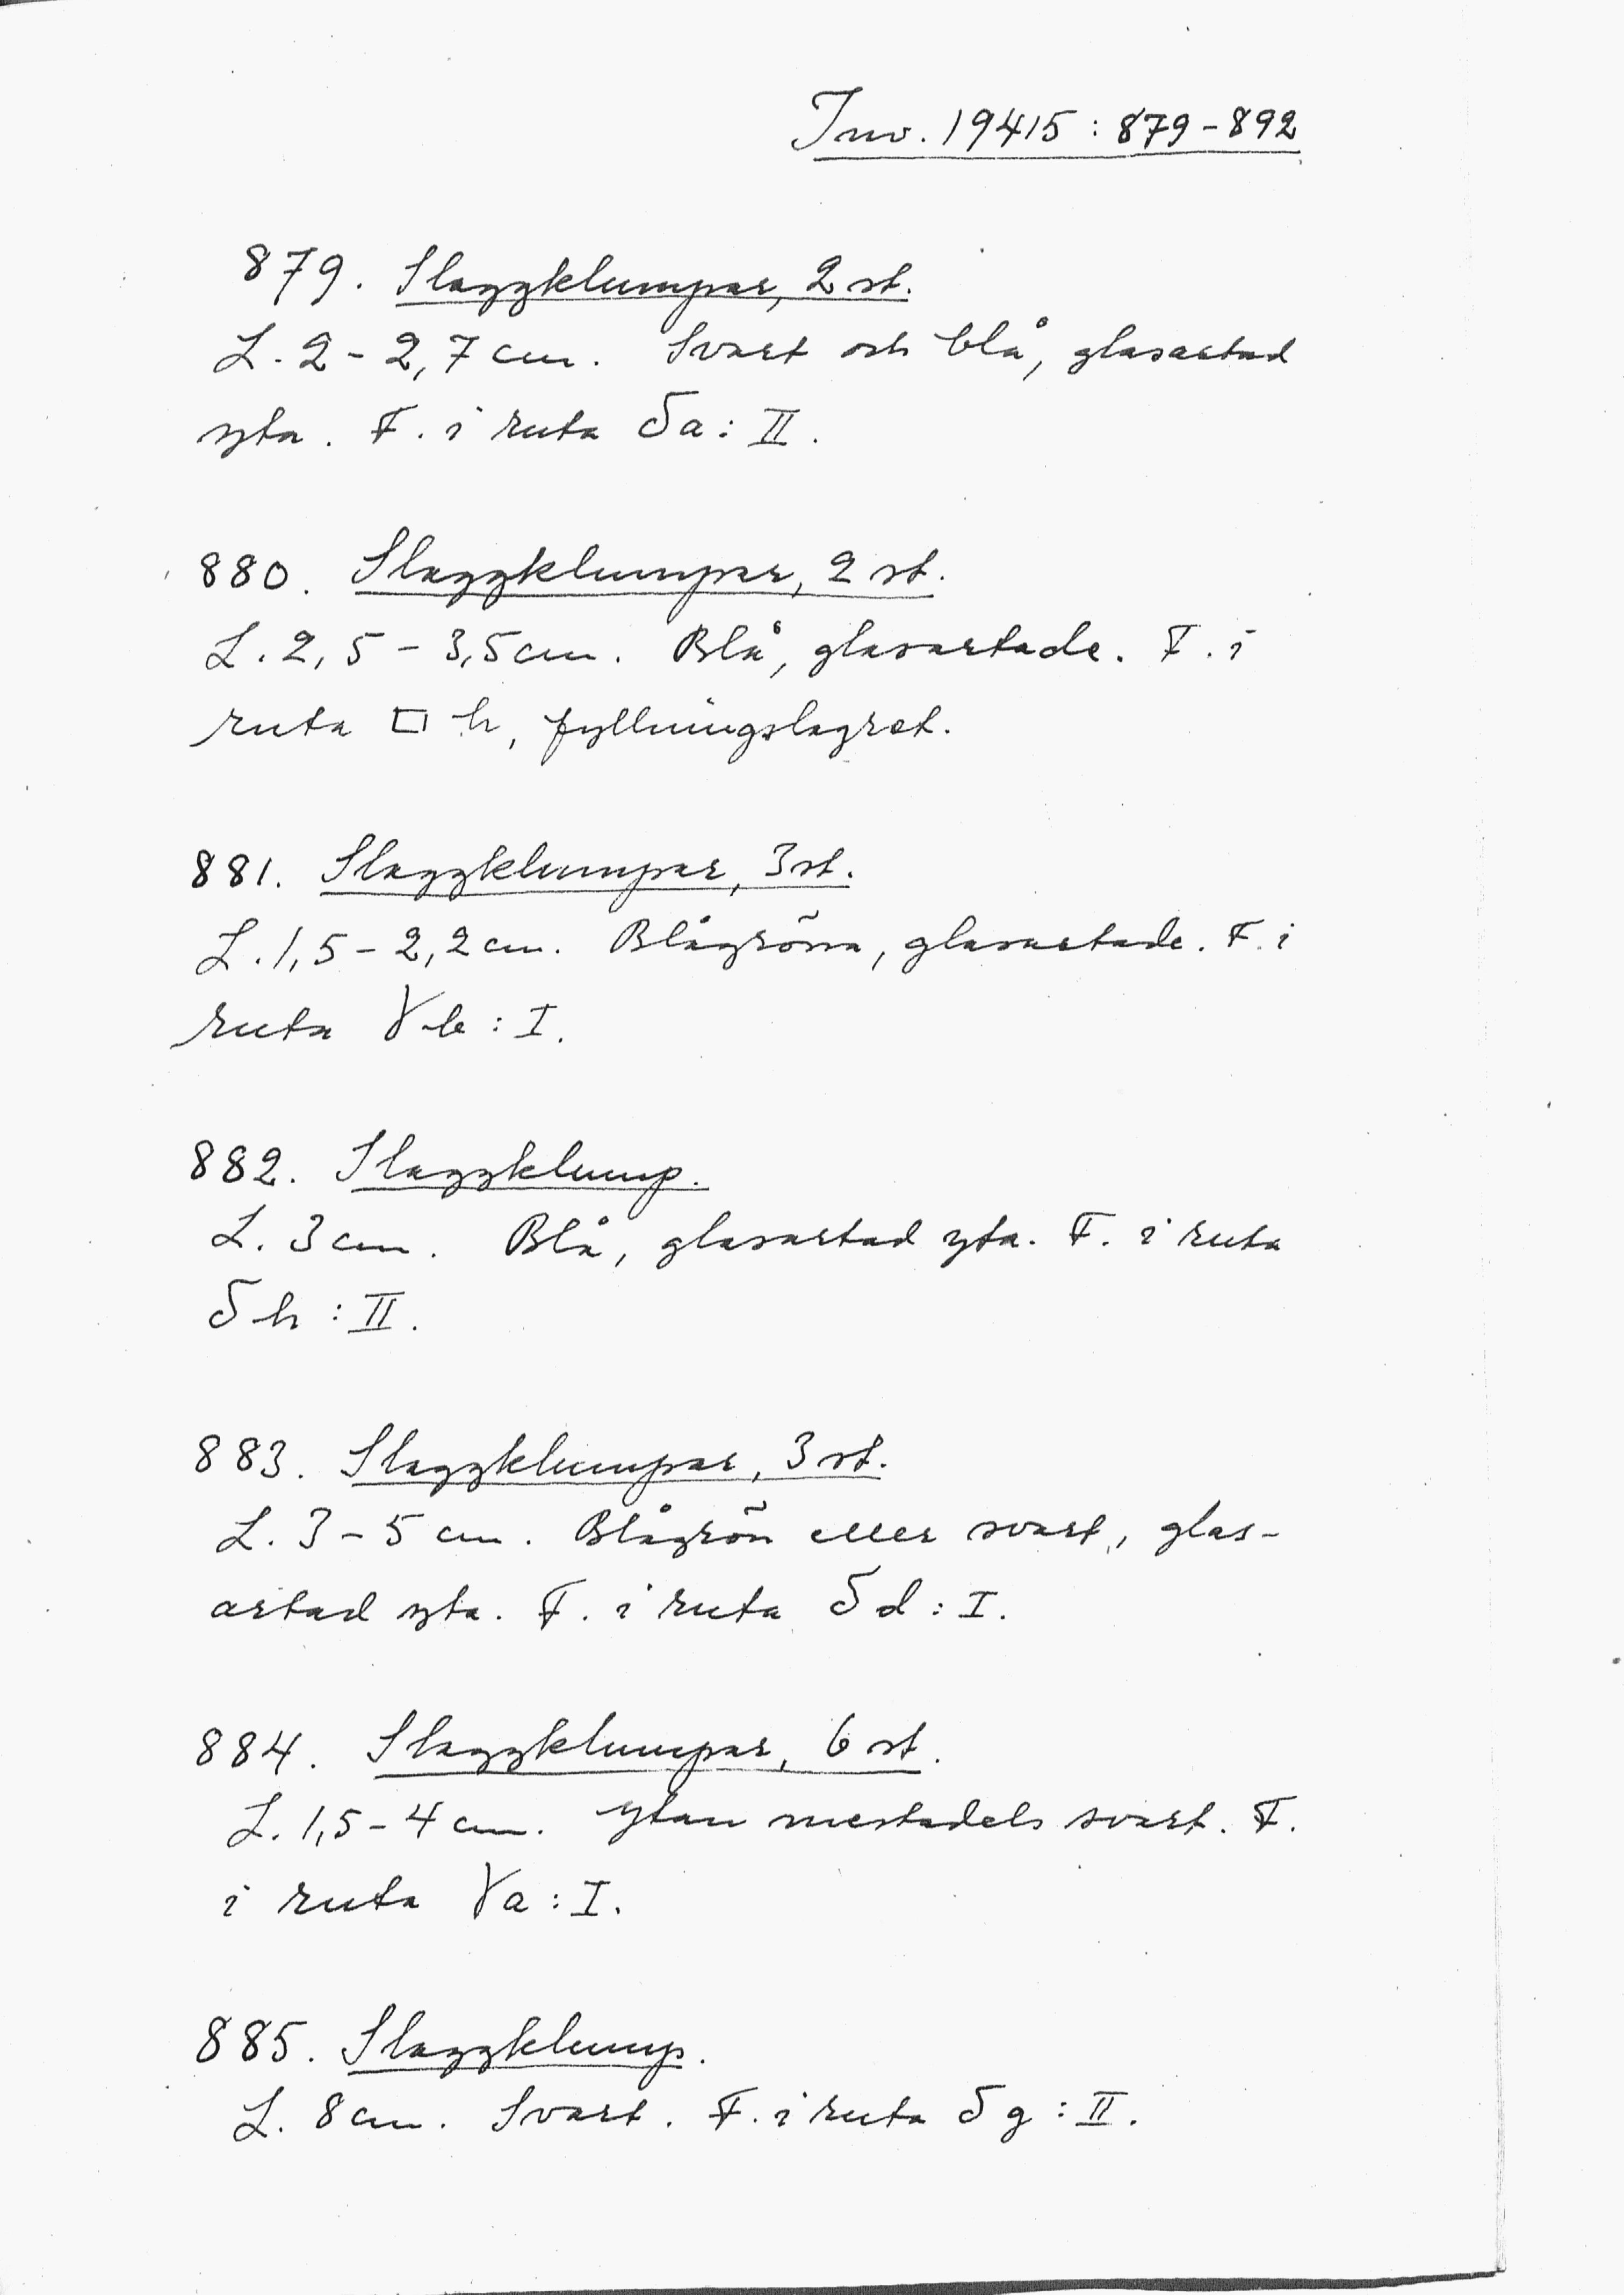 Inv. 19415 : 879-892
879. Slaggklumpar, 2 st.
L. 2 - 2,7 cm. Svart och blå, glasartad
yta. F. i ruta δa: II.
880. Slaggklumpar, 2 st.
L. 2,5 - 3,5 cm. Blå, glasartade. F. i
ruta □ h, fyllningslagret.
881. Slaggklumpar, 3 st.
L. 1,5 - 2,2 cm. Blågröna, glasartade. F. i
ruta γ b : I.
882. Slaggklump.
L. 3 cm. Blå, glasartad yta. F. i ruta
δ h : II.
883. Slaggklumpar, 3 st.
L. 3 - 5 cm. Blågrön eller svart, glas-
artad yta. F. i ruta δ d : I.
884. Slaggklumpar, 6 st.
L. 1,5 - 4 cm. Ytan mestadels svart. F.
i ruta γa : I.
885. Slaggklump.
L. 8 cm. Svart. F. i ruta δ g : II.